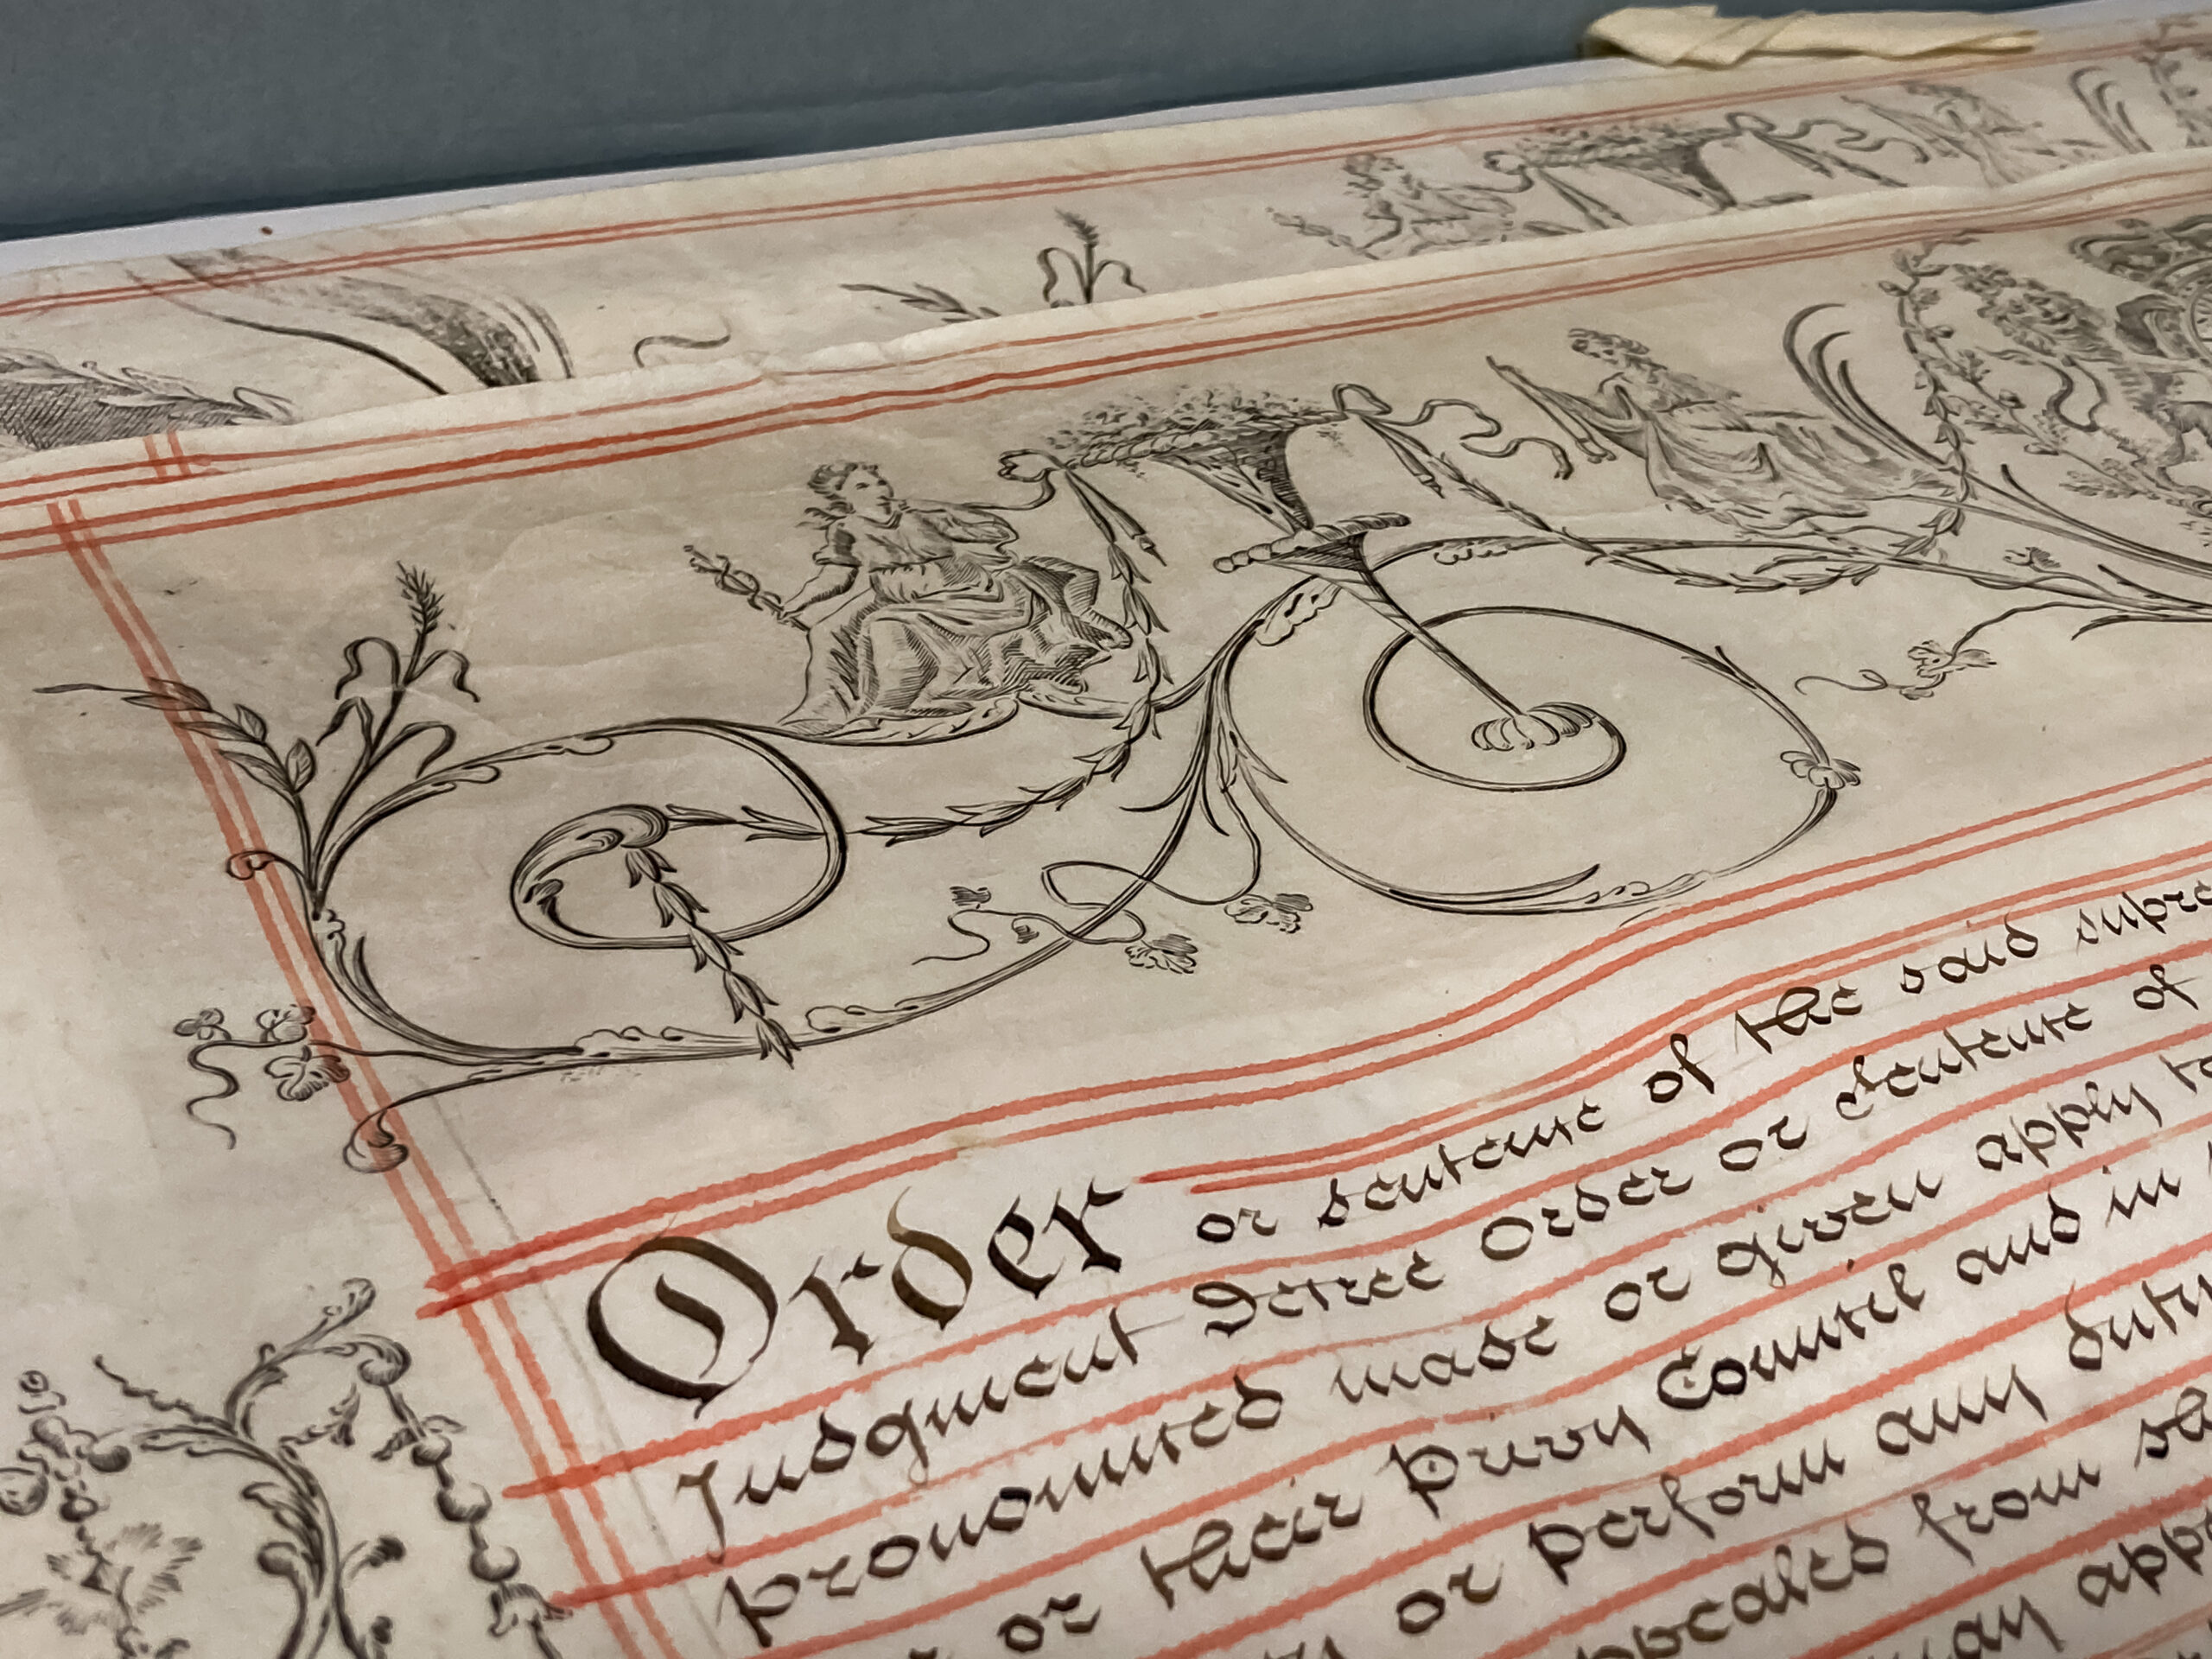 Order or sentence of the said supre
Judgment Decree Order or Sentence of
pronounced made or given apply
or their Privy Council and in
or perform any duty
appealed from
may app